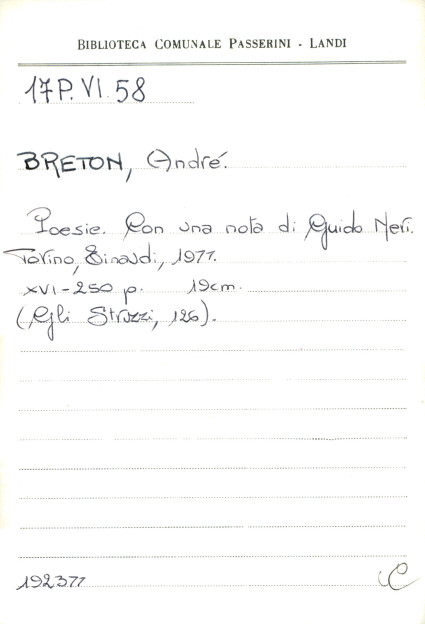 BIBLIOTECA COMUNALE PASSERINI - LANDI
17P.VI.58
BRETON, André.
Poesie. Con una nota di Guido Neri.
Torino, Einaudi, 1977.
XVI-250 p. 19cm.
(Gli Struzzi, 126).
192377
C